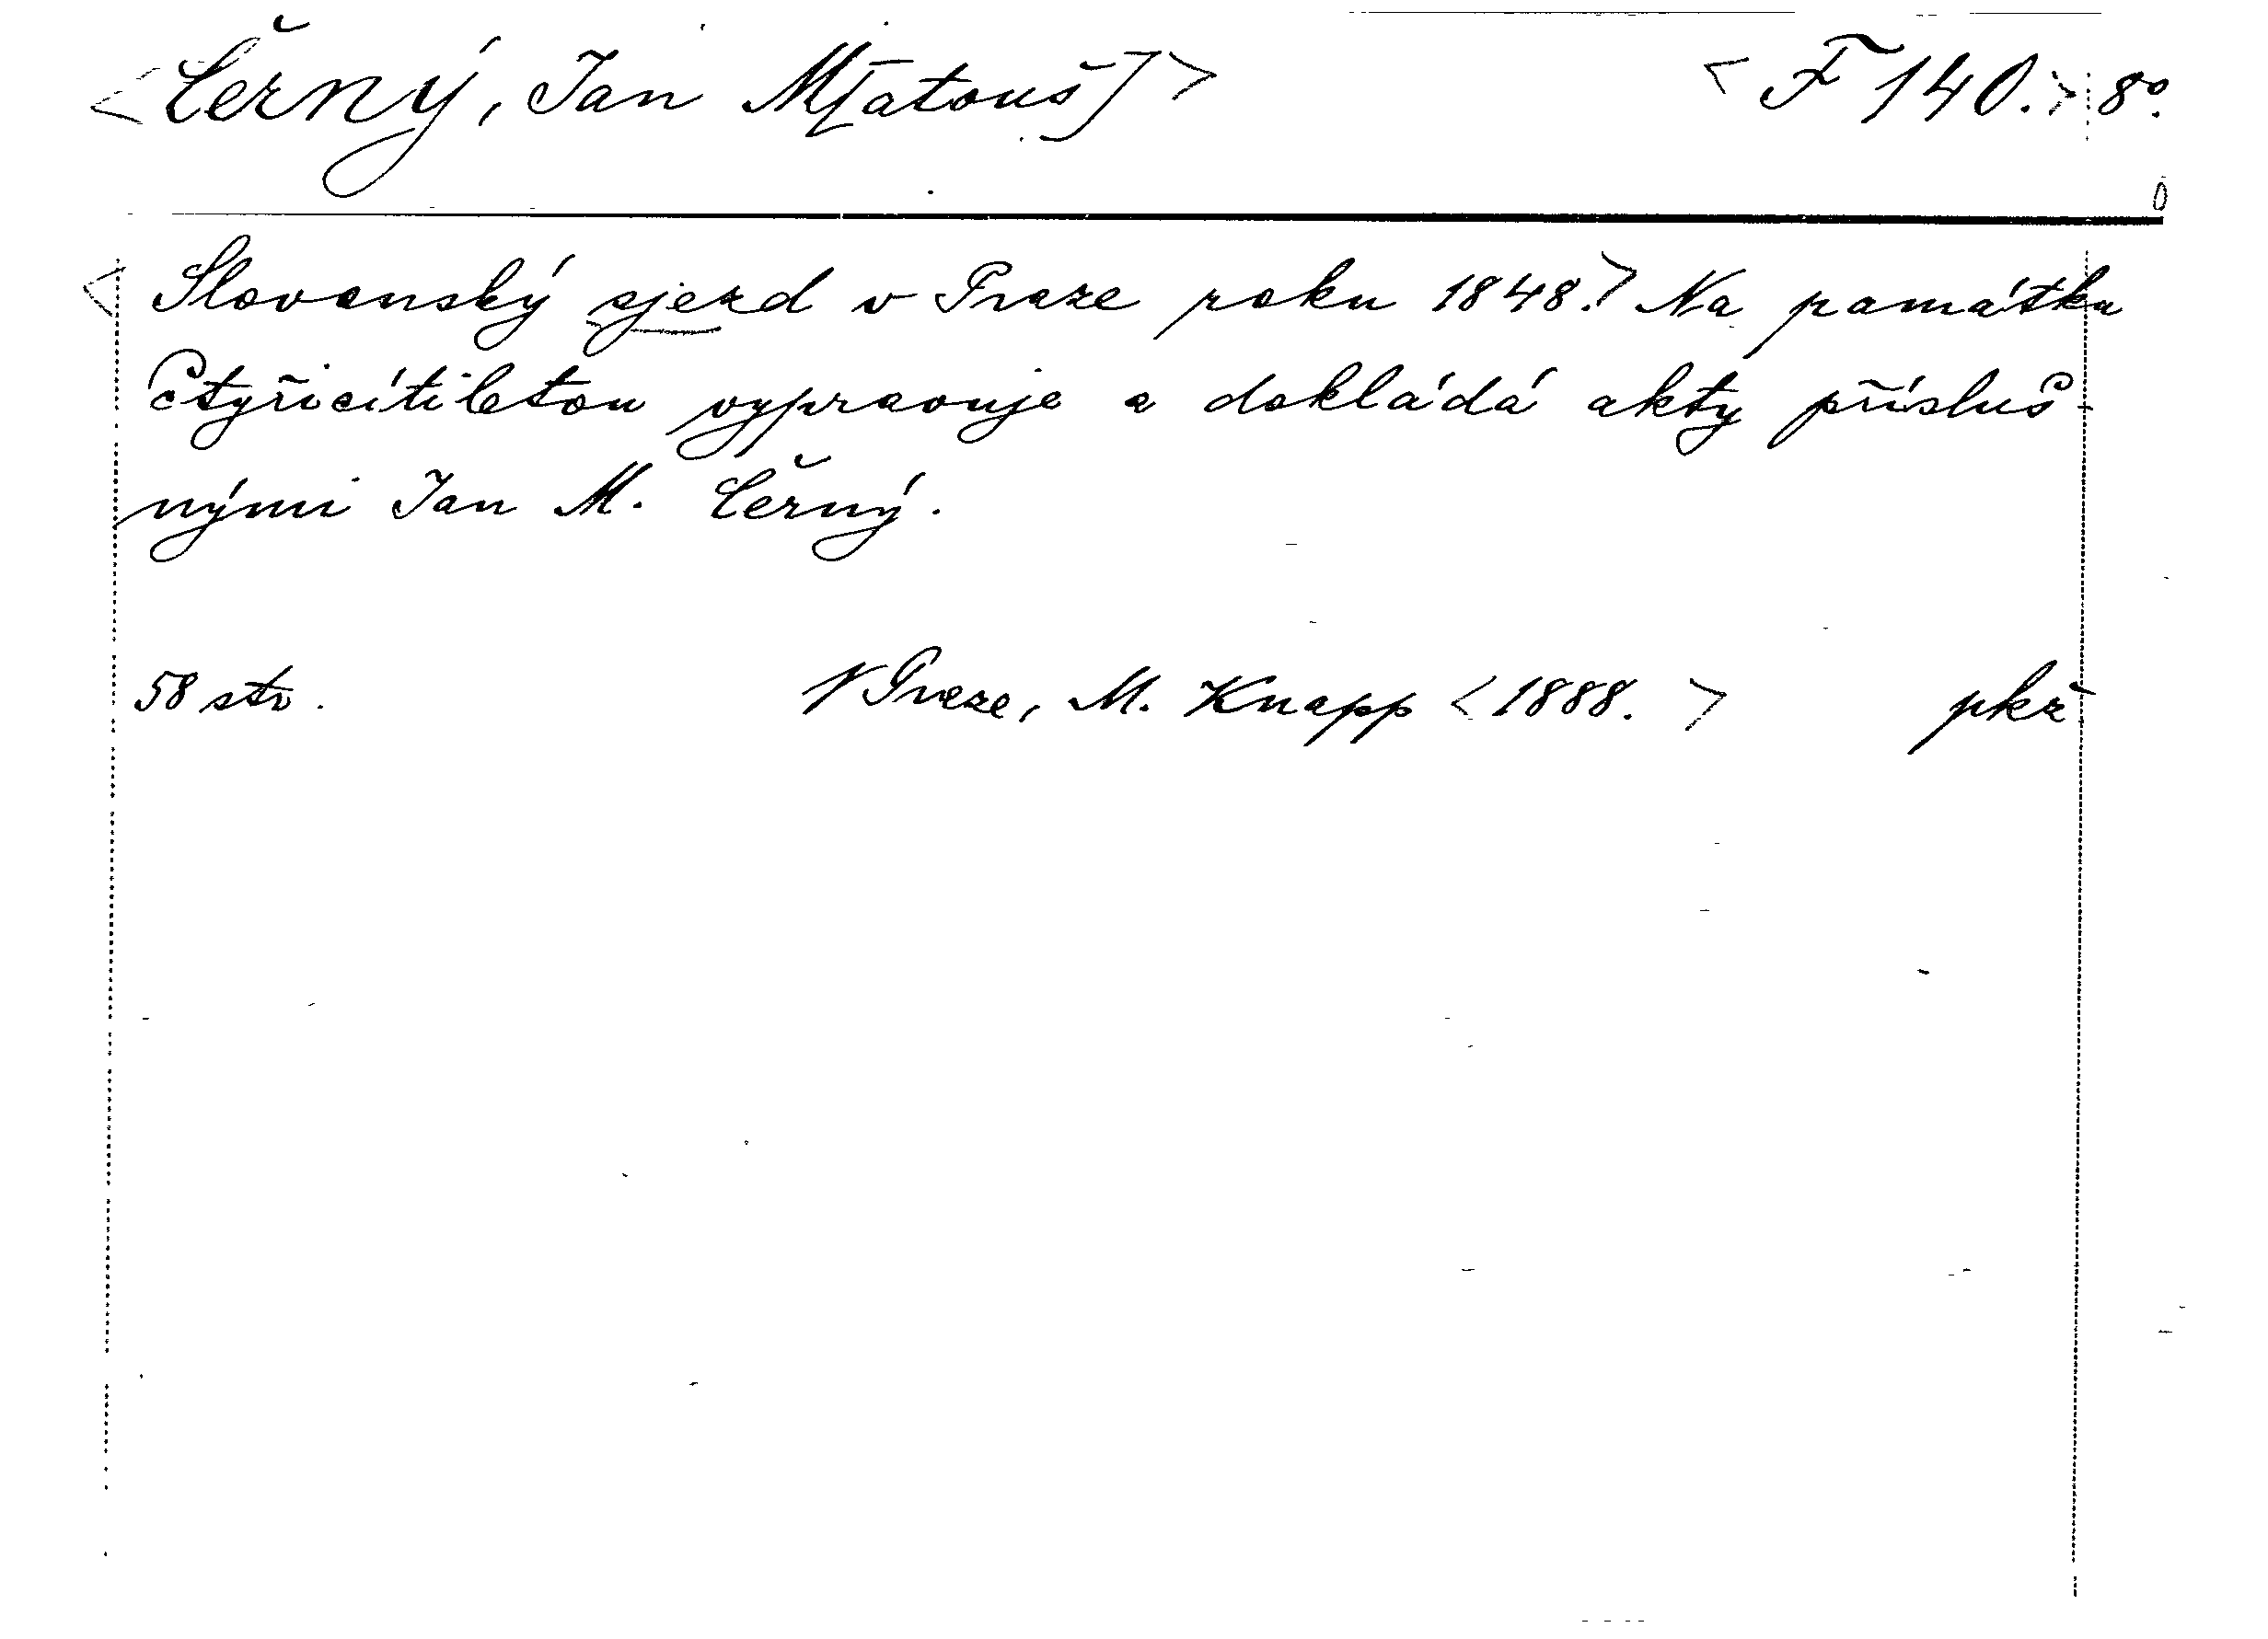 <Černý, Jan M[atouš]> <F 140.> 8°.
<Slovanský sjezd v Praze roku 1848.> Na památku
čtyřicítiletou vypravuje a dokládá akty přísluš-
nými Jan M. Černý.
58 str. V Praze, M. Knapp <1888.> pkř